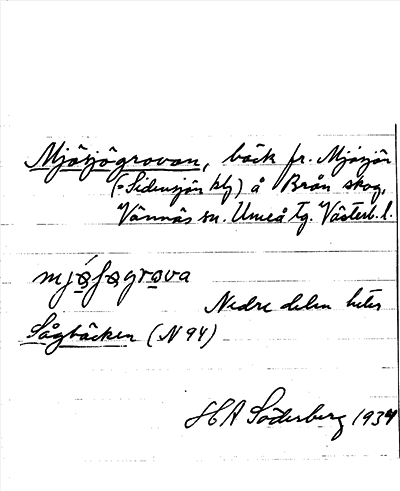 Mjösjögrovan, bäck fr. Mjösjön
(= Sidensjön kbl) å Brån skog,
Vännäs sn. Umeå tg. Västerb. l.
mjǿʃøgrova
Nedre delen heter
Sågbäcken (N 94)
H A Söderberg 1934